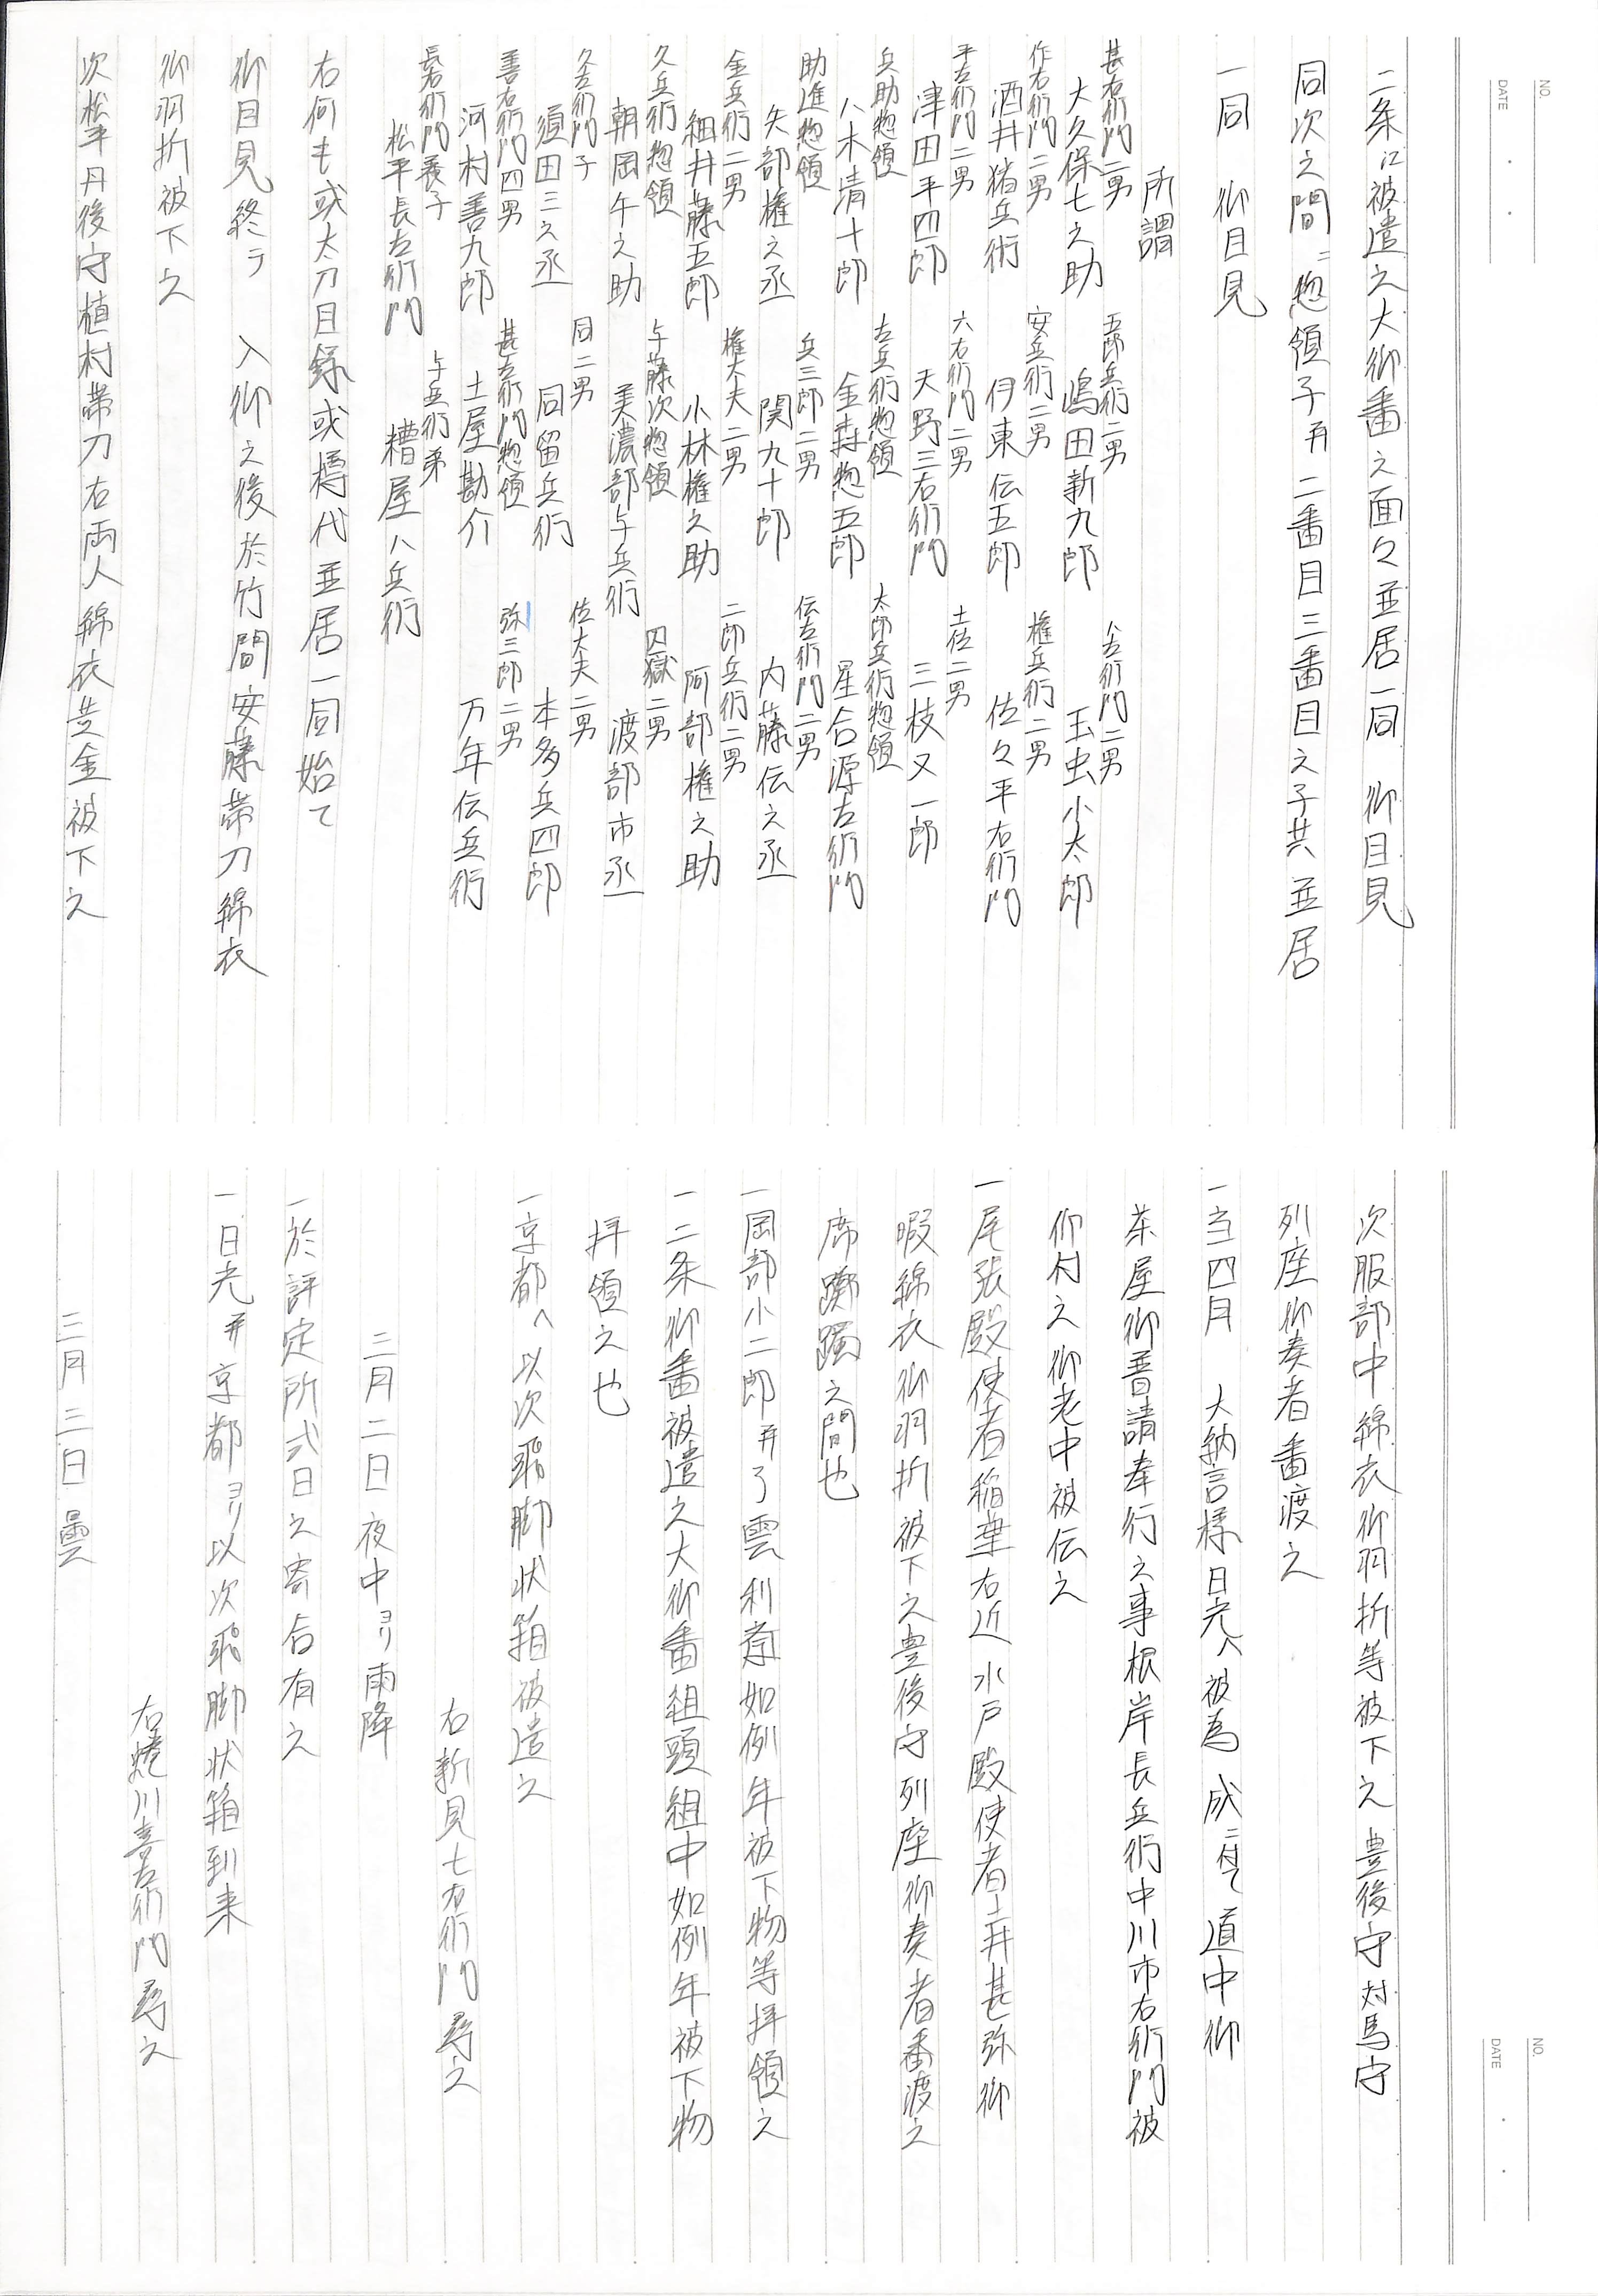 NO.
DATE
二条江被遣之大御番之面々並居一同　御目見
同次之間ニ惣領子并二番目三番目之子共並居
一同　御目見
所謂
甚右衛門二男　五郎兵衛二男　八左衛門二男
大久保七之助　嶋田新九郎　玉虫小太郎
作右衛門二男　安兵衛二男　権兵衛二男
酒井猪兵衛　伊東伝五郎　佐々平右衛門
平左衛門二男　六右衛門二男　土佐二男
津田平四郎　天野三右衛門　三枝又一郎
兵助惣領　左兵衛惣領　太郎兵衛惣領
八木清十郎　金森惣五郎　星合源左衛門
助進惣領　兵三郎二男　伝左衛門二男
矢部権之丞　関九十郎　内藤伝之丞
金兵衛二男　権大夫二男　二郎兵衛二男
細井藤五郎　小林権之助　阿部権之助
久兵衛惣領　与藤次惣領　囚獄二男
朝岡午之助　美濃部与兵衛　渡部市丞
久左衛門子　同二男　佐大夫二男
須田三之丞　同留兵衛　本多兵四郎
善右衛門四男　甚五衛門惣領　弥三郎二男
河村善九郎　土屋勘介　万年伝兵衛
長右衛門養子　与兵衛弟
松平長左衛門　糟屋八兵衛
右何も或太刀目録或樽代並居一同始て
御目見終テ　入御之後於竹間安藤帯刀綿衣
御羽折被下之
次松平丹後守植村帯刀右両人綿衣共金被下之
NO.
DATE
次服部中綿衣御羽折等被下之　豊後守対馬守
列座御奏者番渡之
一当四月　大納言様日光へ被為　成ニ付て道中御
茶屋御普請奉行之事根岸長兵衛中川市右衛門被
仰付之御老中被伝之
一尾張殿使者稲葉右近　水戸殿使者土井甚弥御
暇綿衣御羽折被下之豊後守列座御奏者番渡之
席躑躅之間也
一岡部小二郎并了雲利斎如例年被下物等拝領之
一二条御番被遣之大御番組頭組中如例年被下物
拝領之也
一京都へ以次飛脚状箱被遣之
右新見七右衛門尋之
三月二日夜中ヨリ雨降
一於評定所式日之寄合有之
一日光并京都ヨリ以次飛脚状箱到来
右蜷川喜左衛門尋之
三月三日曇